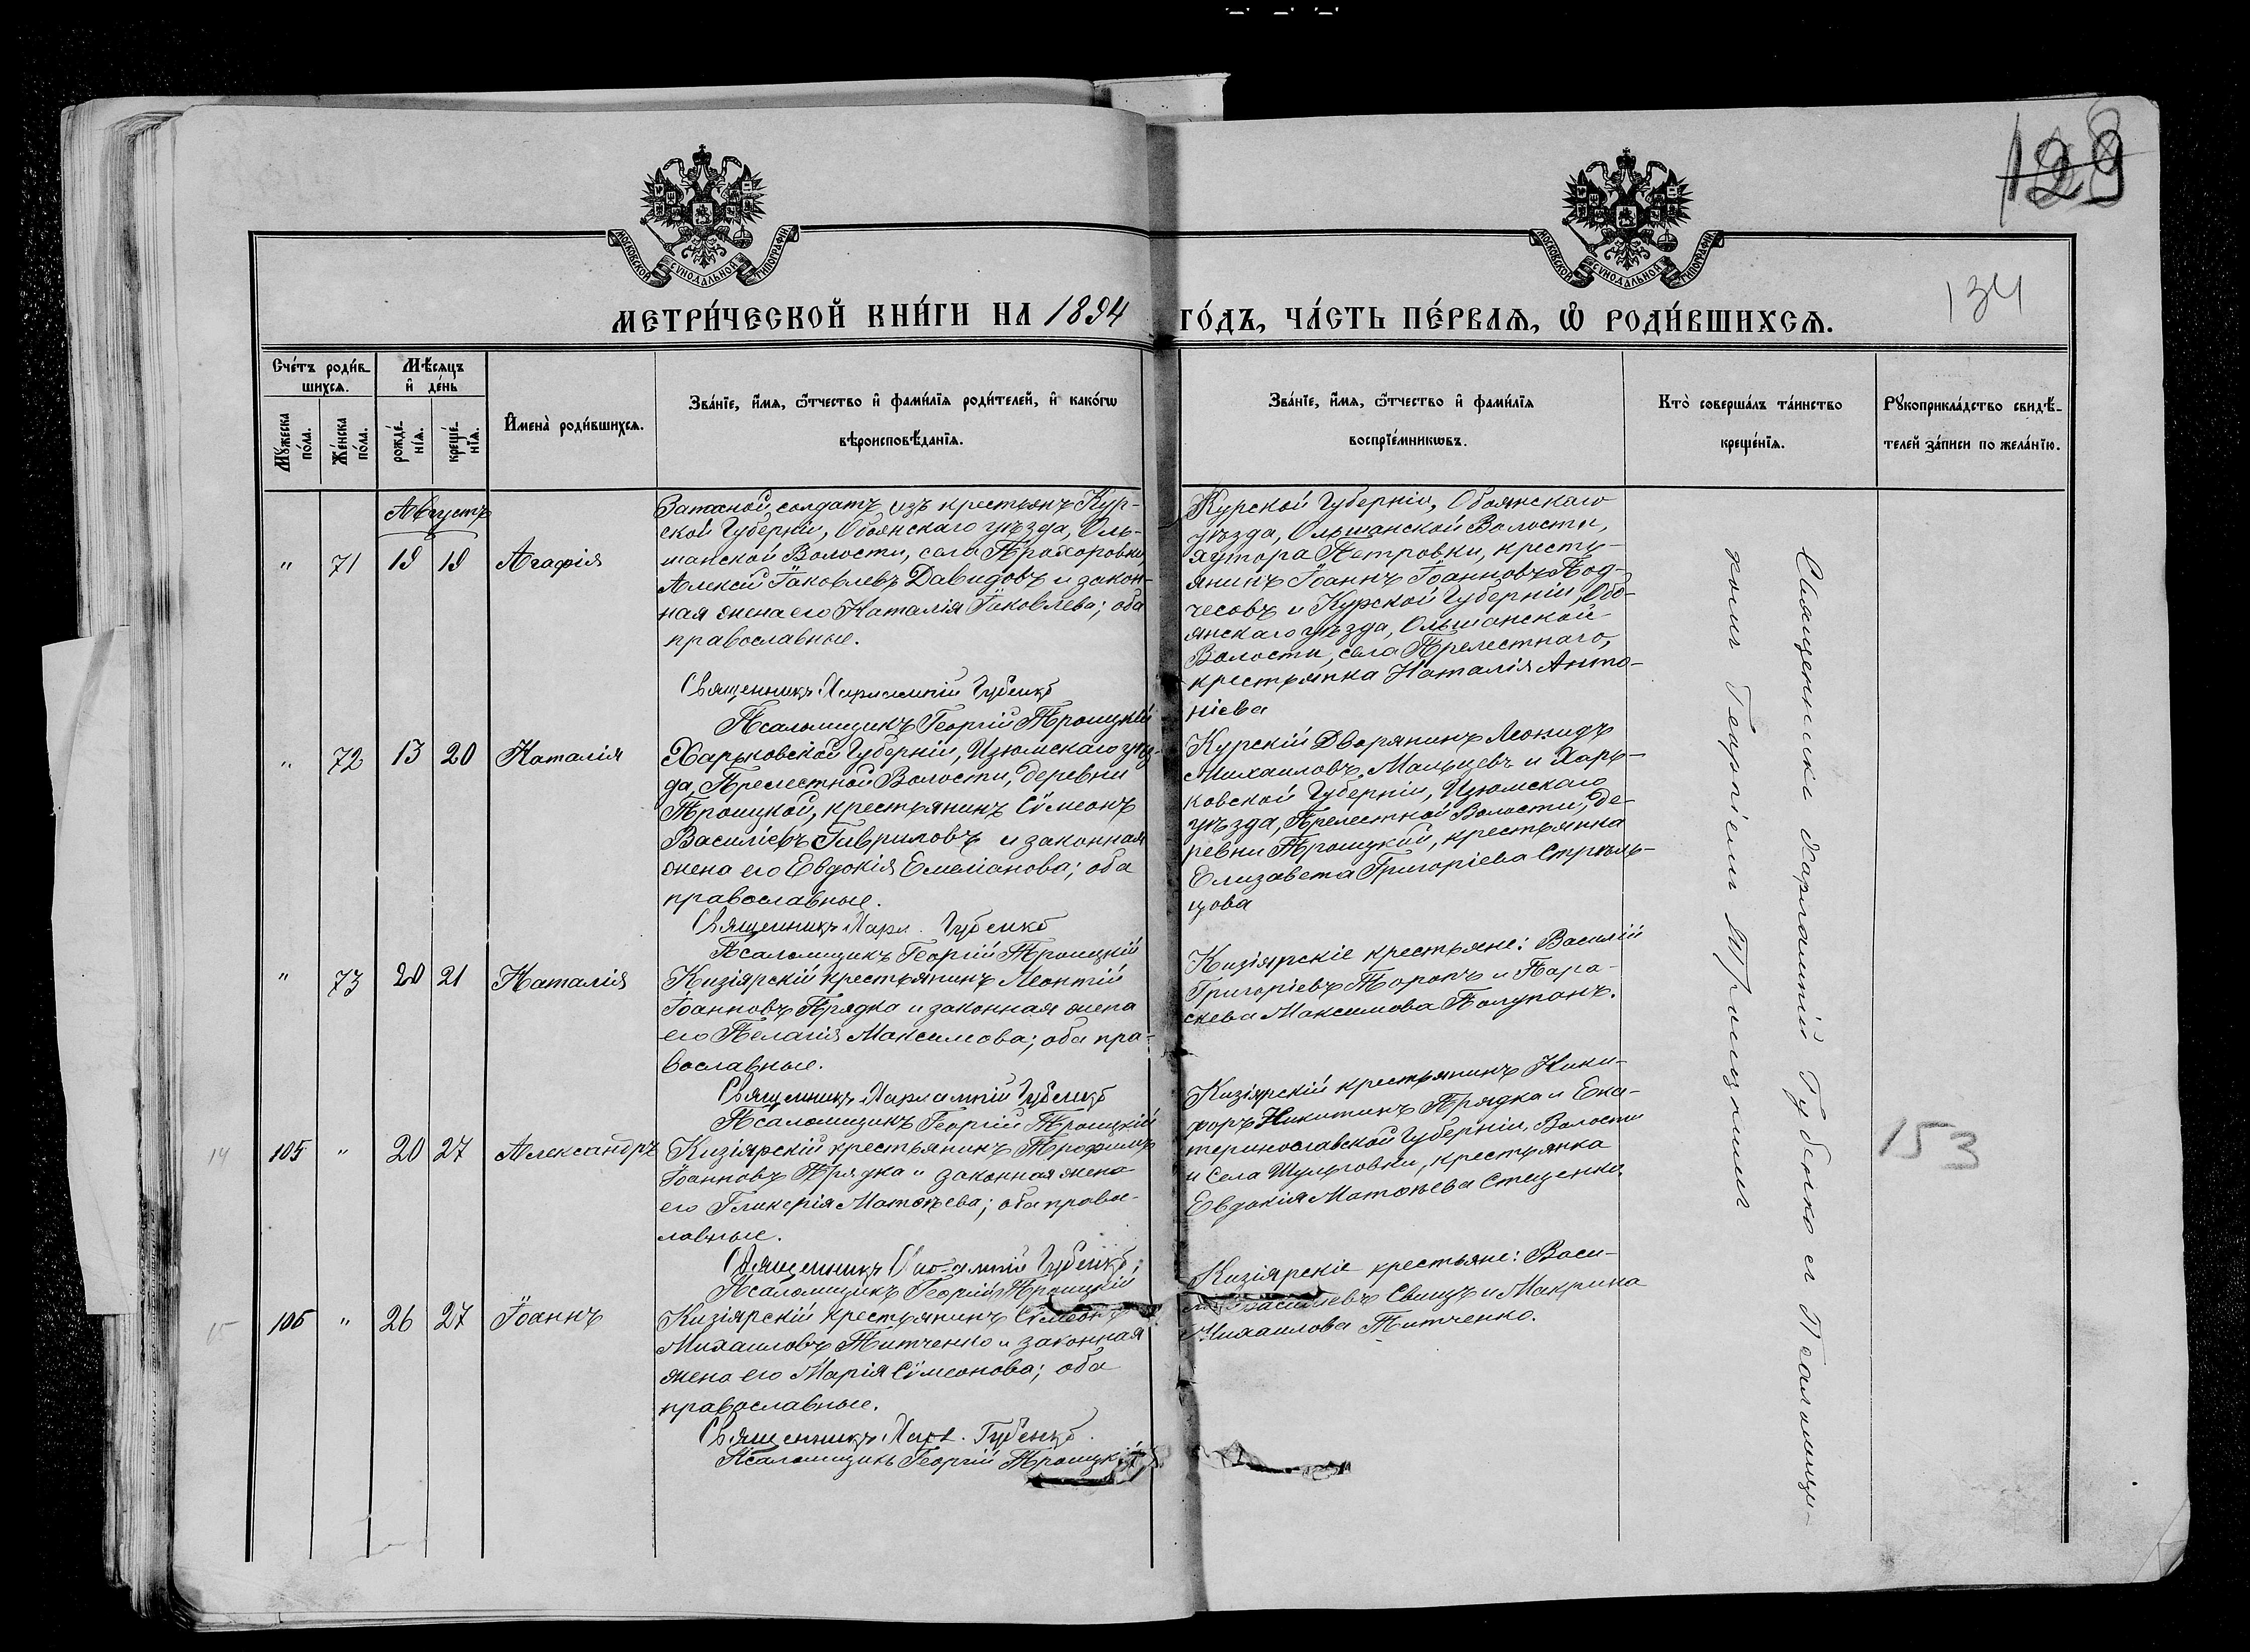 128
129
134
МОСКОВСКОЙ СѴНОДАЛЬНОЙ ТИПОГРАФІИ
МОСКОВСКОЙ СѴНОДАЛЬНОЙ ТИПОГРАФІИ
МЕТРИ́ЧЕСКОЙ КНИ́ГИ НА 1894 ГО́ДЪ, ЧА́СТЬ ПЕ́РВАѦ, Ѡ҆ РОДИ́ВШИХСѦ.
Сче́тъ роди́в-
шихсѧ.
Мꙋ́жеска
по́ла.
Же́нска
по́ла.
Мѣ́сѧцъ
и҆ де́нь
рожде́-
нїѧ.
креще́-
нїѧ.
И҆мена̀ роди́вшихсѧ.
Зва́нїе, и҆́мѧ, ѻ҆́тчество и҆ фами́лїѧ роди́телей, и҆ како́гѡ
вѣроисповѣ́данїѧ.
Зва́нїе, и҆́мѧ, ѻ҆́тчество и҆ фами́лїѧ
воспрїе́мникѡвъ.
Кто̀ соверша́лъ та́инство
креще́нїѧ.
Рꙋкоприкла́дство свидѣ́-
телей за́писи по жела́нїю.
Августъ
" 71 19 19 Агафія
Запасной солдатъ изъ крестьянъ Кур-
ской Губерніи, Обоянскаго уѣзда, Оль-
шанской Волости, села Прохоровки,
Алексій Іаковлевъ Давидовъ и закон-
ная жена его Наталія Іаковлева; оба
православные.
Священникъ Харлампій Губенко
Псаломщикъ Георгій Троицкій
Курской Губерніи, Обоянскаго
уѣзда, Ольшанской Волости,
хутора Петровки, кресть-
янинъ Іоаннъ Іоанновъ Под-
чесовъ и Курской Губерніи, Обо-
янскаго уѣзда, Ольшанской
Волости, села Прелестнаго,
крестьянка Наталія Анто-
ніева
" 72 13 20 Наталія
Харьковской Губерніи, Изюмскаго уѣз-
да, Прелестной Волости, деревни
Троицкой, крестьянинъ Сѵмеонъ
Василіевъ Гавриловъ и законная
жена его Евдокія Емеліанова; оба
православные.
Священникъ Харл. Губенко
Псаломщикъ Георгій Троицкій
Курскій Дворянинъ Леонидъ
Михаиловъ Мальцевъ и Харь-
ковской Губерніи, Изюмскаго
уѣзда, Прелестной Волости, де-
ревни Троицкой, крестьянка
Елизавета Григоріева Стрѣль-
цова
" 73 20 21 Наталія
Кизіярскій крестьянинъ Леонтій
Іоанновъ Прядка и законная жена
его Пелагія Максимова; оба пра-
вославные.
Священникъ Харлампій Губенко
Псаломщикъ Георгій Троицкій
Кизіярскіе крестьяне: Василій
Григоріевъ Таранъ и Пара-
скева Максимова Полупанъ.
14 105 " 20 27 Александръ
Кизіярскій крестьянинъ Трофимъ
Іоанновъ Прядка и законная жена
его Гликерія Матѳѣева; оба правос-
лавные.
Священникъ Харлампій Губенко;
Псаломщикъ Георгій Троицкій
Кизіярскій крестьянинъ Ники-
форъ Никитинъ Прядка и Ека-
теринославской Губерніи, Волости
и Села Шульговки, крестьянка
Евдокія Матѳѣева Стеценко.
153
15 106 " 26 27 Іоаннъ
Кизіярскій крестьянинъ Сѵмеонъ
Михаиловъ Титченко и законная
жена его Марія Сѵмеонова; оба
православные.
Священникъ Харл. Губенко.
Псаломщикъ Георгій Троицкій
Кизіярскіе крестьяне: Васи-
лій Василіевъ Свищъ и Макрина
Михаилова Титченко.
Священникъ Харлампій Губенко съ Псаломщи-
комъ Георгіемъ Троицкимъ